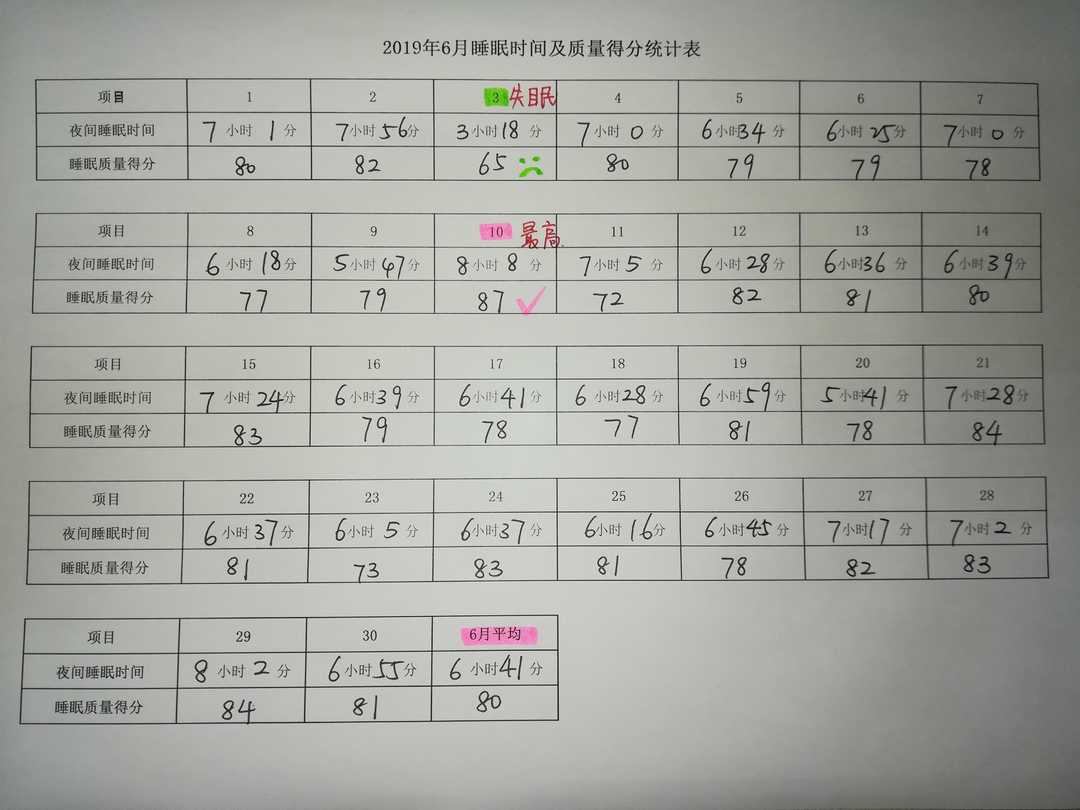 2019年6月睡眠时间及质量得分统计表
项目 1 2 3 失眠 4 5 6 7
夜间睡眠时间 7小时1分 7小时56分 3小时18分 7小时0分 6小时34分 6小时25分 7小时0分
睡眠质量得分 80 82 65 80 79 79 78
项目 8 9 10 最高 11 12 13 14
夜间睡眠时间 6小时18分 5小时47分 8小时8分 7小时5分 6小时28分 6小时36分 6小时39分
睡眠质量得分 77 79 87 72 82 81 80
项目 15 16 17 18 19 20 21
夜间睡眠时间 7小时24分 6小时39分 6小时41分 6小时28分 6小时59分 5小时41分 7小时28分
睡眠质量得分 83 79 78 77 81 78 84
项目 22 23 24 25 26 27 28
夜间睡眠时间 6小时37分 6小时5分 6小时37分 6小时16分 6小时45分 7小时17分 7小时2分
睡眠质量得分 81 73 83 81 78 82 83
项目 29 30 6月平均
夜间睡眠时间 8小时2分 6小时55分 6小时41分
睡眠质量得分 84 81 80